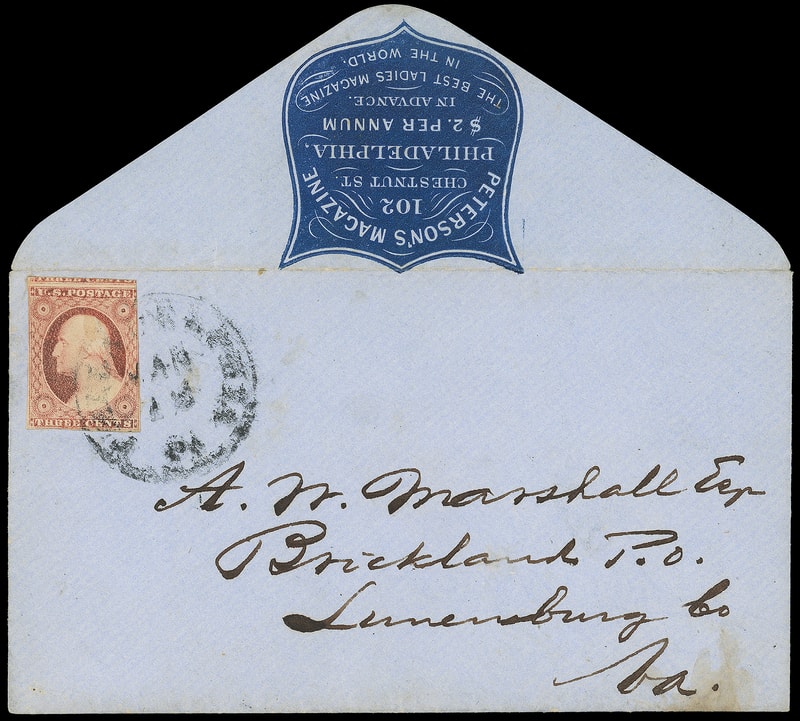 PETERSON'S MAGAZINE,
102
CHESTNUT ST.
PHILADELPHIA,
$2. PER ANNUM
IN ADVANCE.
THE BEST LADIES MAGAZINE
IN THE WORLD.
U.S. POSTAGE
THREE CENTS
JAN
A. W. Marshall Esq
Brickland P.O.
Lunenburg Co
Va.